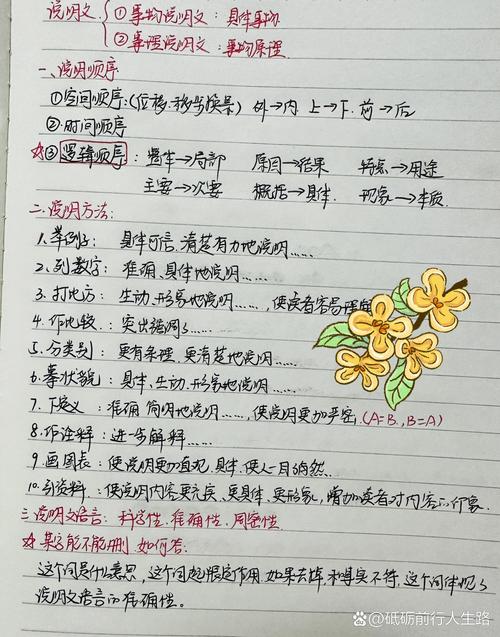 说明文 ①事物说明文：具体事物
②事理说明文：事物原理
一、说明顺序
①空间顺序：(位移、移步换景) 外→内 上→下 前→后
②时间顺序
☆③逻辑顺序：整体→局部 原因→结果 特点→用途
主要→次要 概括→具体 现象→本质
二、说明方法：
1.举例子：具体可信、清楚有力地说明……
2.列数字：准确、具体地说明……
3.打比方：生动、形象地说明……，使读者容易理解
4.作比较：突出强调了……
5.分类别：更有条理、更清楚地说明……
6.摹状貌：具体、生动、形象地说明……
7.下定义：准确 简明地说明……，使说明更加严密，(A=B, B=A)
8.作诠释：进一步解释……
9.画图表：使说明更加直观、具体、使人一目了然
10.引资料：使说明内容更充实、更具体、更形象，增加读者对内容的印象.
三、说明文语言：科学性、准确性、周密性
☆某字能不能删，如何答：
这个词是什么意思，这个词起限定作用，如果去掉，和事实不符，这个词体现了
说明文语言的准确性。
@砥砺前行人生路